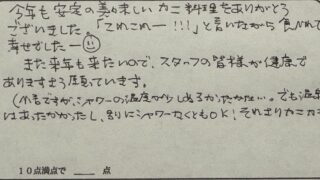 今年も安定の美味しいカニ料理をありがとう
ございました「てれこれー!!!」と言いながら食べれて
幸せでしたー
また来年も来たいので、スタッフの皆様が健康で
ありますよう願っています。
(小言ですが、シャワーの温度が少しぬるかったかな…。でも温泉
はあったかかったし、別にシャワーなくともOK!それよりカニカニ
10点満点で 点